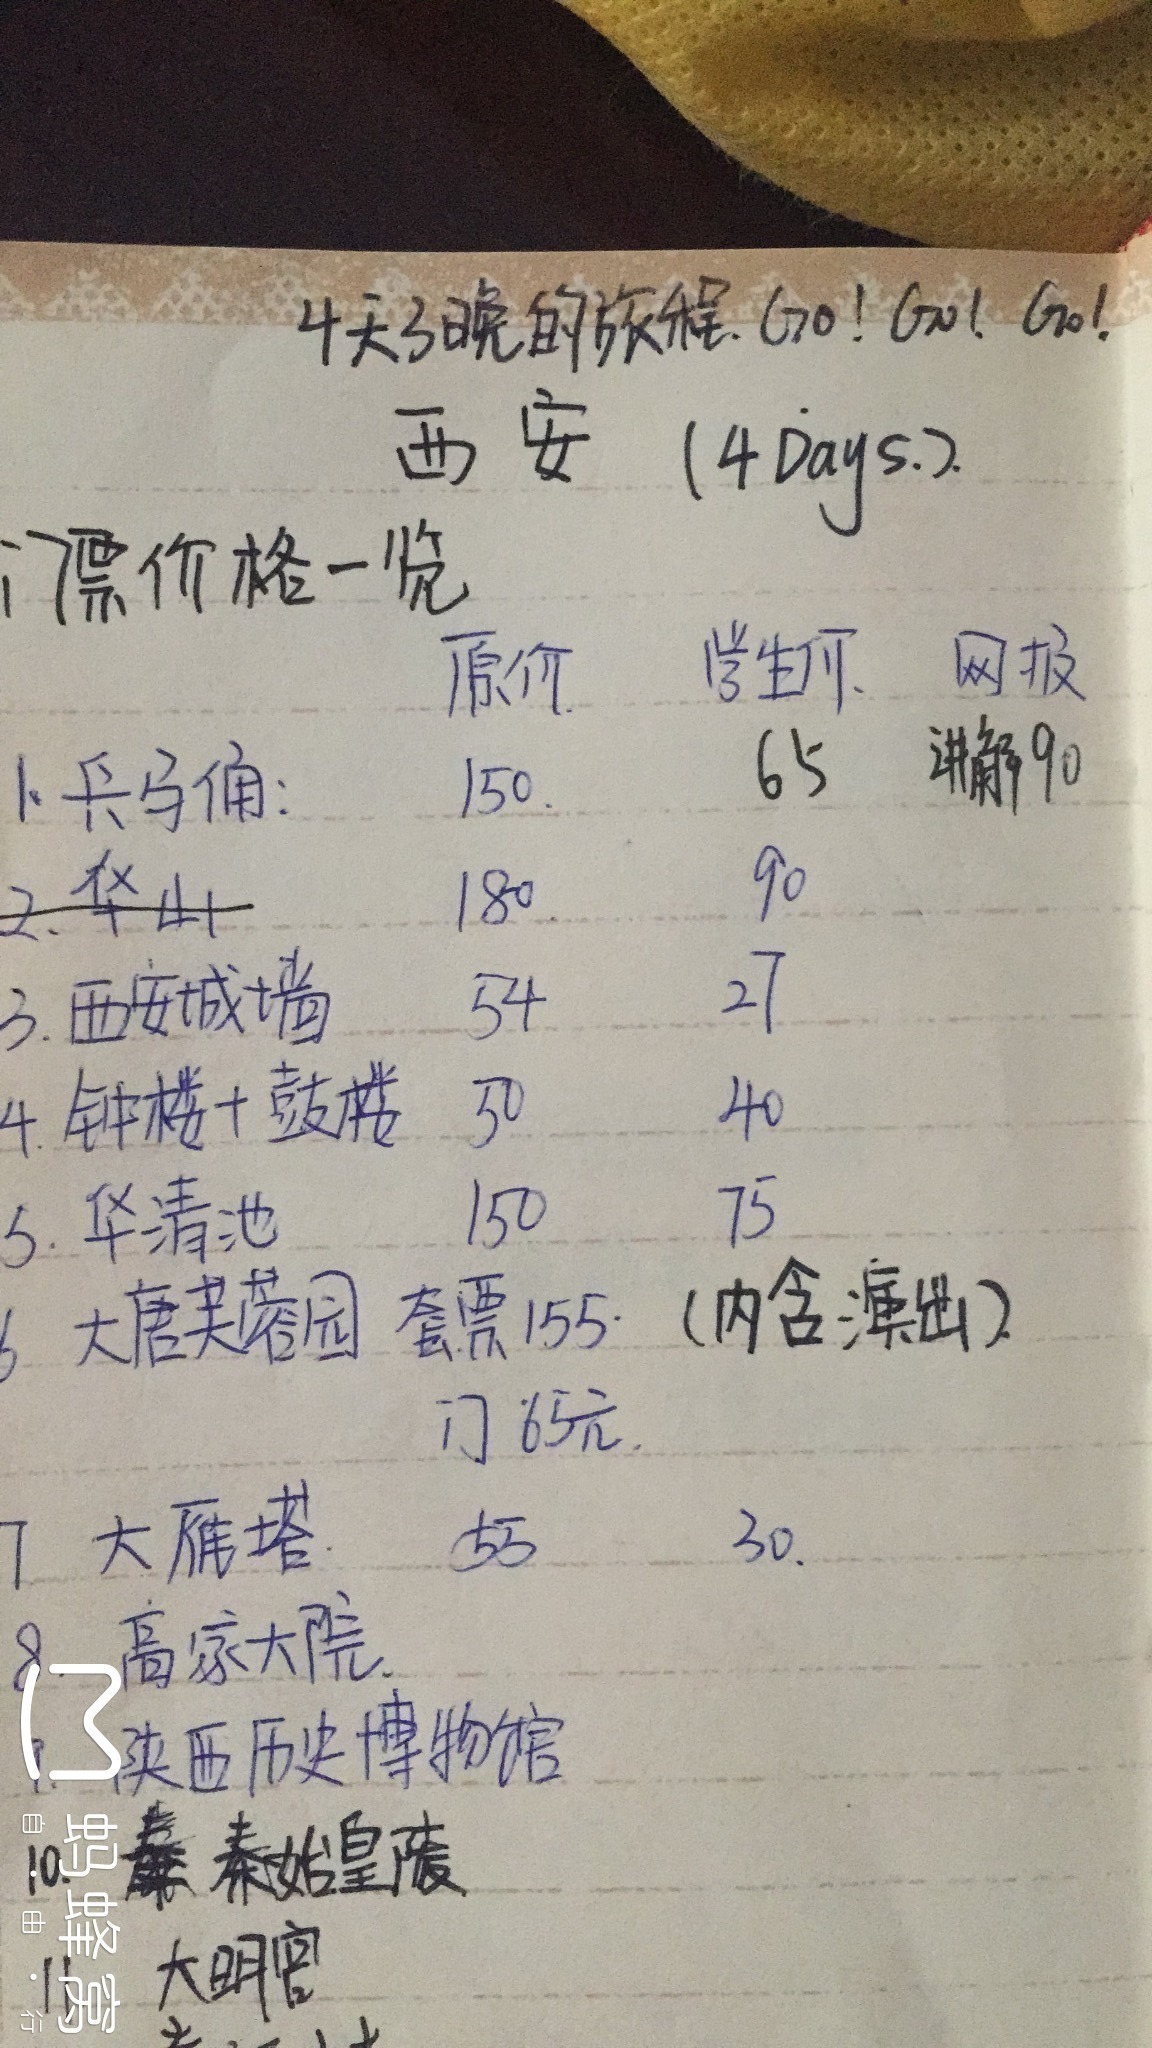 4天3晚的旅程.Go! Go! Go!
西安 (4 Days.).
门票价格一览
原价. 学生价. 网报
1. 兵马俑: 150. 65 讲解90
2. 华山 180 90
3. 西安城墙 54 27
4. 钟楼+鼓楼 50 40
5. 华清池 150 75
6 大唐芙蓉园 套票155. (内含演出).
门 65元.
7 大雁塔. 55 30.
8. 高家大院.
9. 陕西历史博物馆
10. 秦始皇陵
11 大明宫
蚂蜂窝
自·由·行